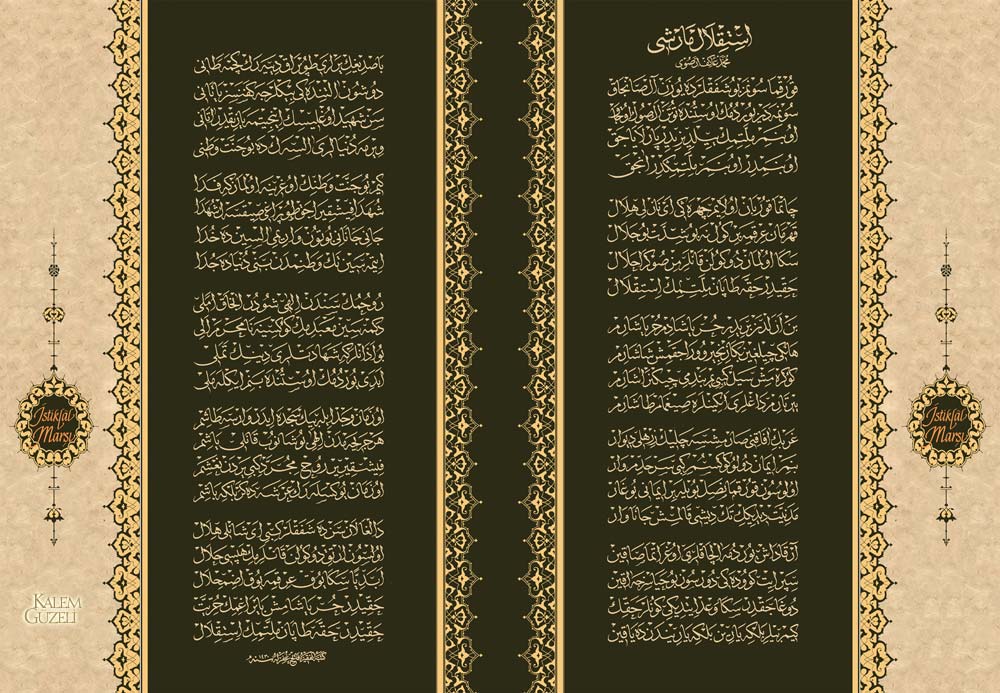 استقلال مارشی
محمد عاكف ارصوی
قورقما سونمز بو شفقلرده یوزن آل صانجاق
سونمه‌دن یوردمك اوستنده توتن اك صوك اوجاق
او بنم ملتمك ییلدیزیدر پارلایاجق
او بنمدر او بنم ملتمكدر آنجق
چاتما قربان اولایم چهره‌كی ای نازلی هلال
قهرمان عرقمه بر كول نه بو شدت بو جلال
سكا اولماز دوكولن قانلریمز صوكرا حلال
حقیدر حقه طاپان ملتمك استقلال
بن ازلدن بریدر حر یاشادم حر یاشارم
هانكی چیلغین بكا زنجیر ووراجقمش شاشارم
كوكره‌مش سیل كبی‌یم بندمی چیكنر آشارم
ییرتارم داغلری انكینلره صیغمام طاشارم
غربك آفاقنی صارمشسه چلیك زرهلی دیوار
بنم ایمان دولو كوكسم كبی سرحدم وار
اولوسون قورقما ناصل بویله بر ایمانی بوغار
مدنیت دیدیكك تك دیشی قالمش جاناوار
آرقاداش یوردمه آلچاقلری اوغراتما صاقین
سپر ایت كووده‌كی دورسون بو حیاسزجه آقین
دوغاجقدر سكا وعد ایتدیكی كونلر حقك
كیم بیلیر بلكه یارین بلكه یاریندن ده یاقین
باصدیغك یرلری طوپراق دییه‌رك كچمه طانی
دوشون آلتنده‌كی بیكلرجه كفنسز یاتانی
سن شهید اوغلیسك اینجیتمه یازیقدر آتانی
ویرمه دنیالری آلسه‌ك ده بو جنت وطنی
كیم بو جنت وطنك اوغرینه اولماز كه فدا
شهدا فیشقیراجق طوپراغی صیقسه‌ك شهدا
جانی جانانی بوتون واریمی آلسین ده خدا
ایتمه‌سین تك وطنمدن بنی دنیاده جدا
روحمك سندن الهی شودر آنجق املی
دكمه‌سین معبدیمك كوكسینه نامحرم الی
بو اذانلر كه شهادتلری دینك تملی
ابدی یوردمك اوستنده بنم ایكله‌ملی
او زمان وجد ایله بیك سجده ایدر وارسه طاشم
هر جریحه‌مدن الهی بوشانوب قانلی یاشم
فیشقیریر روح مجرد كبی یردن نعشم
او زمان یوكسله‌رك عرشه دكر بلكه باشم
دالغالان سن ده شفقلر كبی ای شانلی هلال
اولسون آرتق دوكولن قانلریمك هپسی حلال
ابدیاً سكا یوق عرقمه یوق اضمحلال
حقیدر حر یاشامش بایراغمك حریت
حقیدر حقه طاپان ملتمك استقلال
İstiklâl
Marşı
İstiklâl
Marşı
KALEM
GÜZELİ